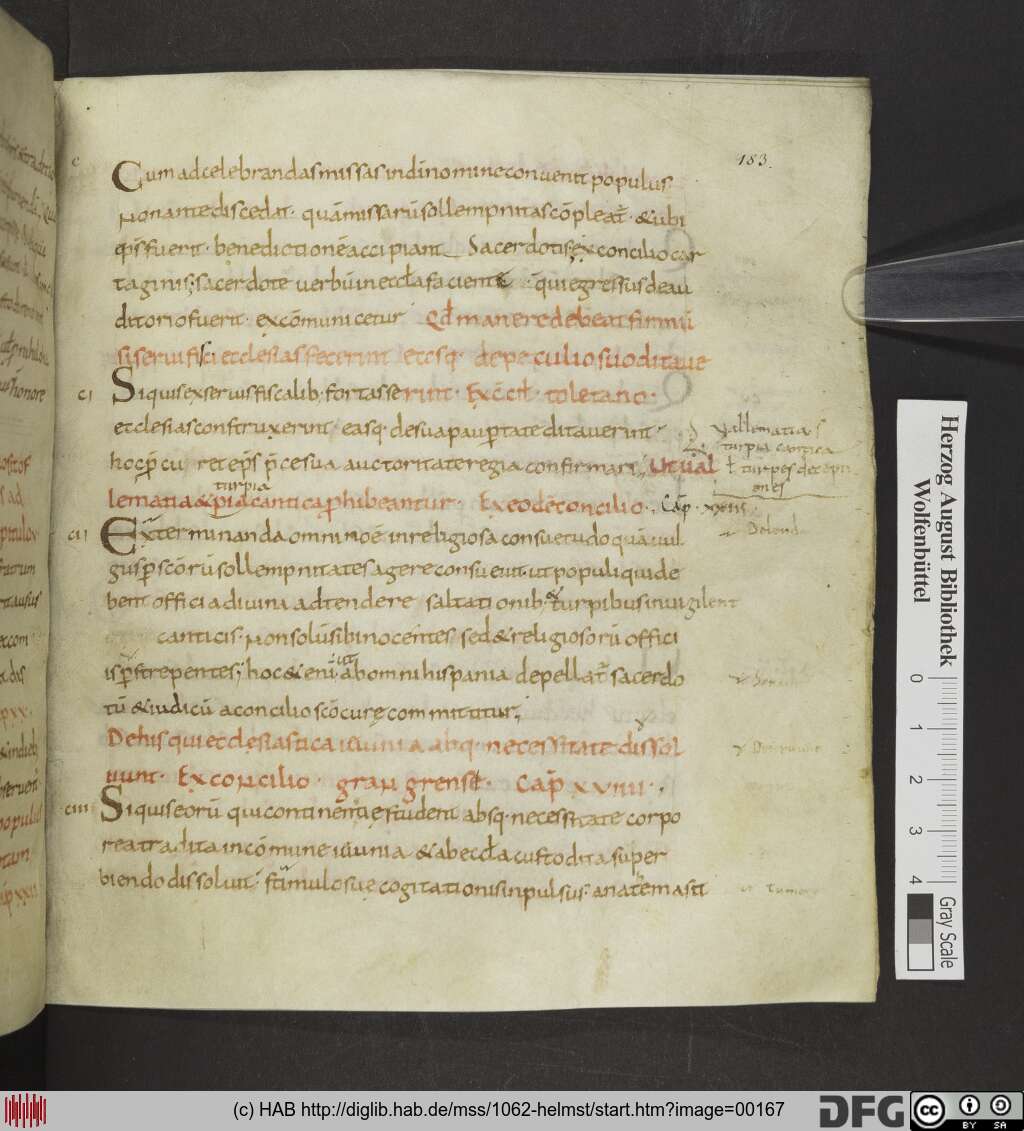 183.
c Cum ad celebrandas missas in dī nomine conuenit populus
Non ante discedat · quā missarū sollempnitas cōpleat᷑ · & ubi
ep̄s fuerit · benedictionē accipiant Sacerdotis ex concilio car
taginis; sacerdote uerbū in eccła faciente · qui egressus de au
ditorio fuerit · excōmunicetur Qd̄ manere debeat firmū
si serui fisci ecclesias fecerint et esq· de peculio suo ditaue
ci Si quis ex seruis fiscalib; fortasse rint · Ex ccīł toletano ·
ecclesias construxerint easq· de sua paup̄tate ditauerint ·
hoc p̄cu ret ep̄s p̄ce sua auctoritate regia confirmari · Ut ual
turpia
lematia & pia cantica phibeantur · Ex eodē concilio · Cap̄ · xxiii
uallematia
turpia cantica
ł turpes
cii Exterminanda omnino ē inreligiosa consuetudo quā uul
gus p̄ scōrū sollempnitates agere consueuit ut populi qui de
bent officia diuina adtendere saltationib; & turpibus inuigilent
canticis · Non solū sibi nocentes sed & religiosorū offici
is p̄strepentes; hoc & enī ut ab omni hispania depellat᷑ sacerdo
tū & iudicū a concilio scō curę committitur;
De his qui ecclesiastica ieiunia absq· necessitate dissol
uunt · Ex concilio · grangrense · Cap̄ xviiii ·
ciii Si quis eorū qui continentię student absq· necessitate corpo
rea tradita in cōmune ieiunia & ab eccła custodita super
biendo dissoluit · stimulo suę cogitationis inpulsus · anatema sit
Herzog August Bibliothek
Wolfenbüttel
0 1 2 3 4
Gray Scale
(c) HAB http://diglib.hab.de/mss/1062-helmst/start.htm?image=00167
DFG
cc BY SA